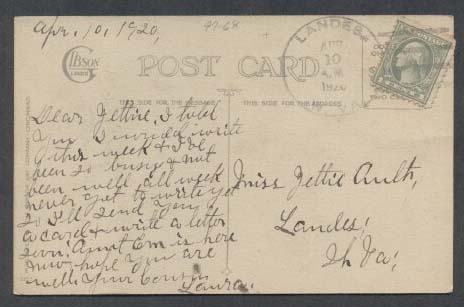 Apr. 10, 1920,
97-68
LANDES
APR
10
A.M.
1920
GIBSON
LINES
POST CARD
THIS SIDE FOR THE MESSAGE
THIS SIDE FOR THE ADDRESS
Dear Jettie. I told
you I would write
this week & I've
been so busy & not
been well all week
never got to write yet
so I'll send you
a card & write a letter
soon. Aunt Em is here
now. hope you are
well. Your Cousin
Laura.
Miss Jettie Ault,
Landes,
W. Va.